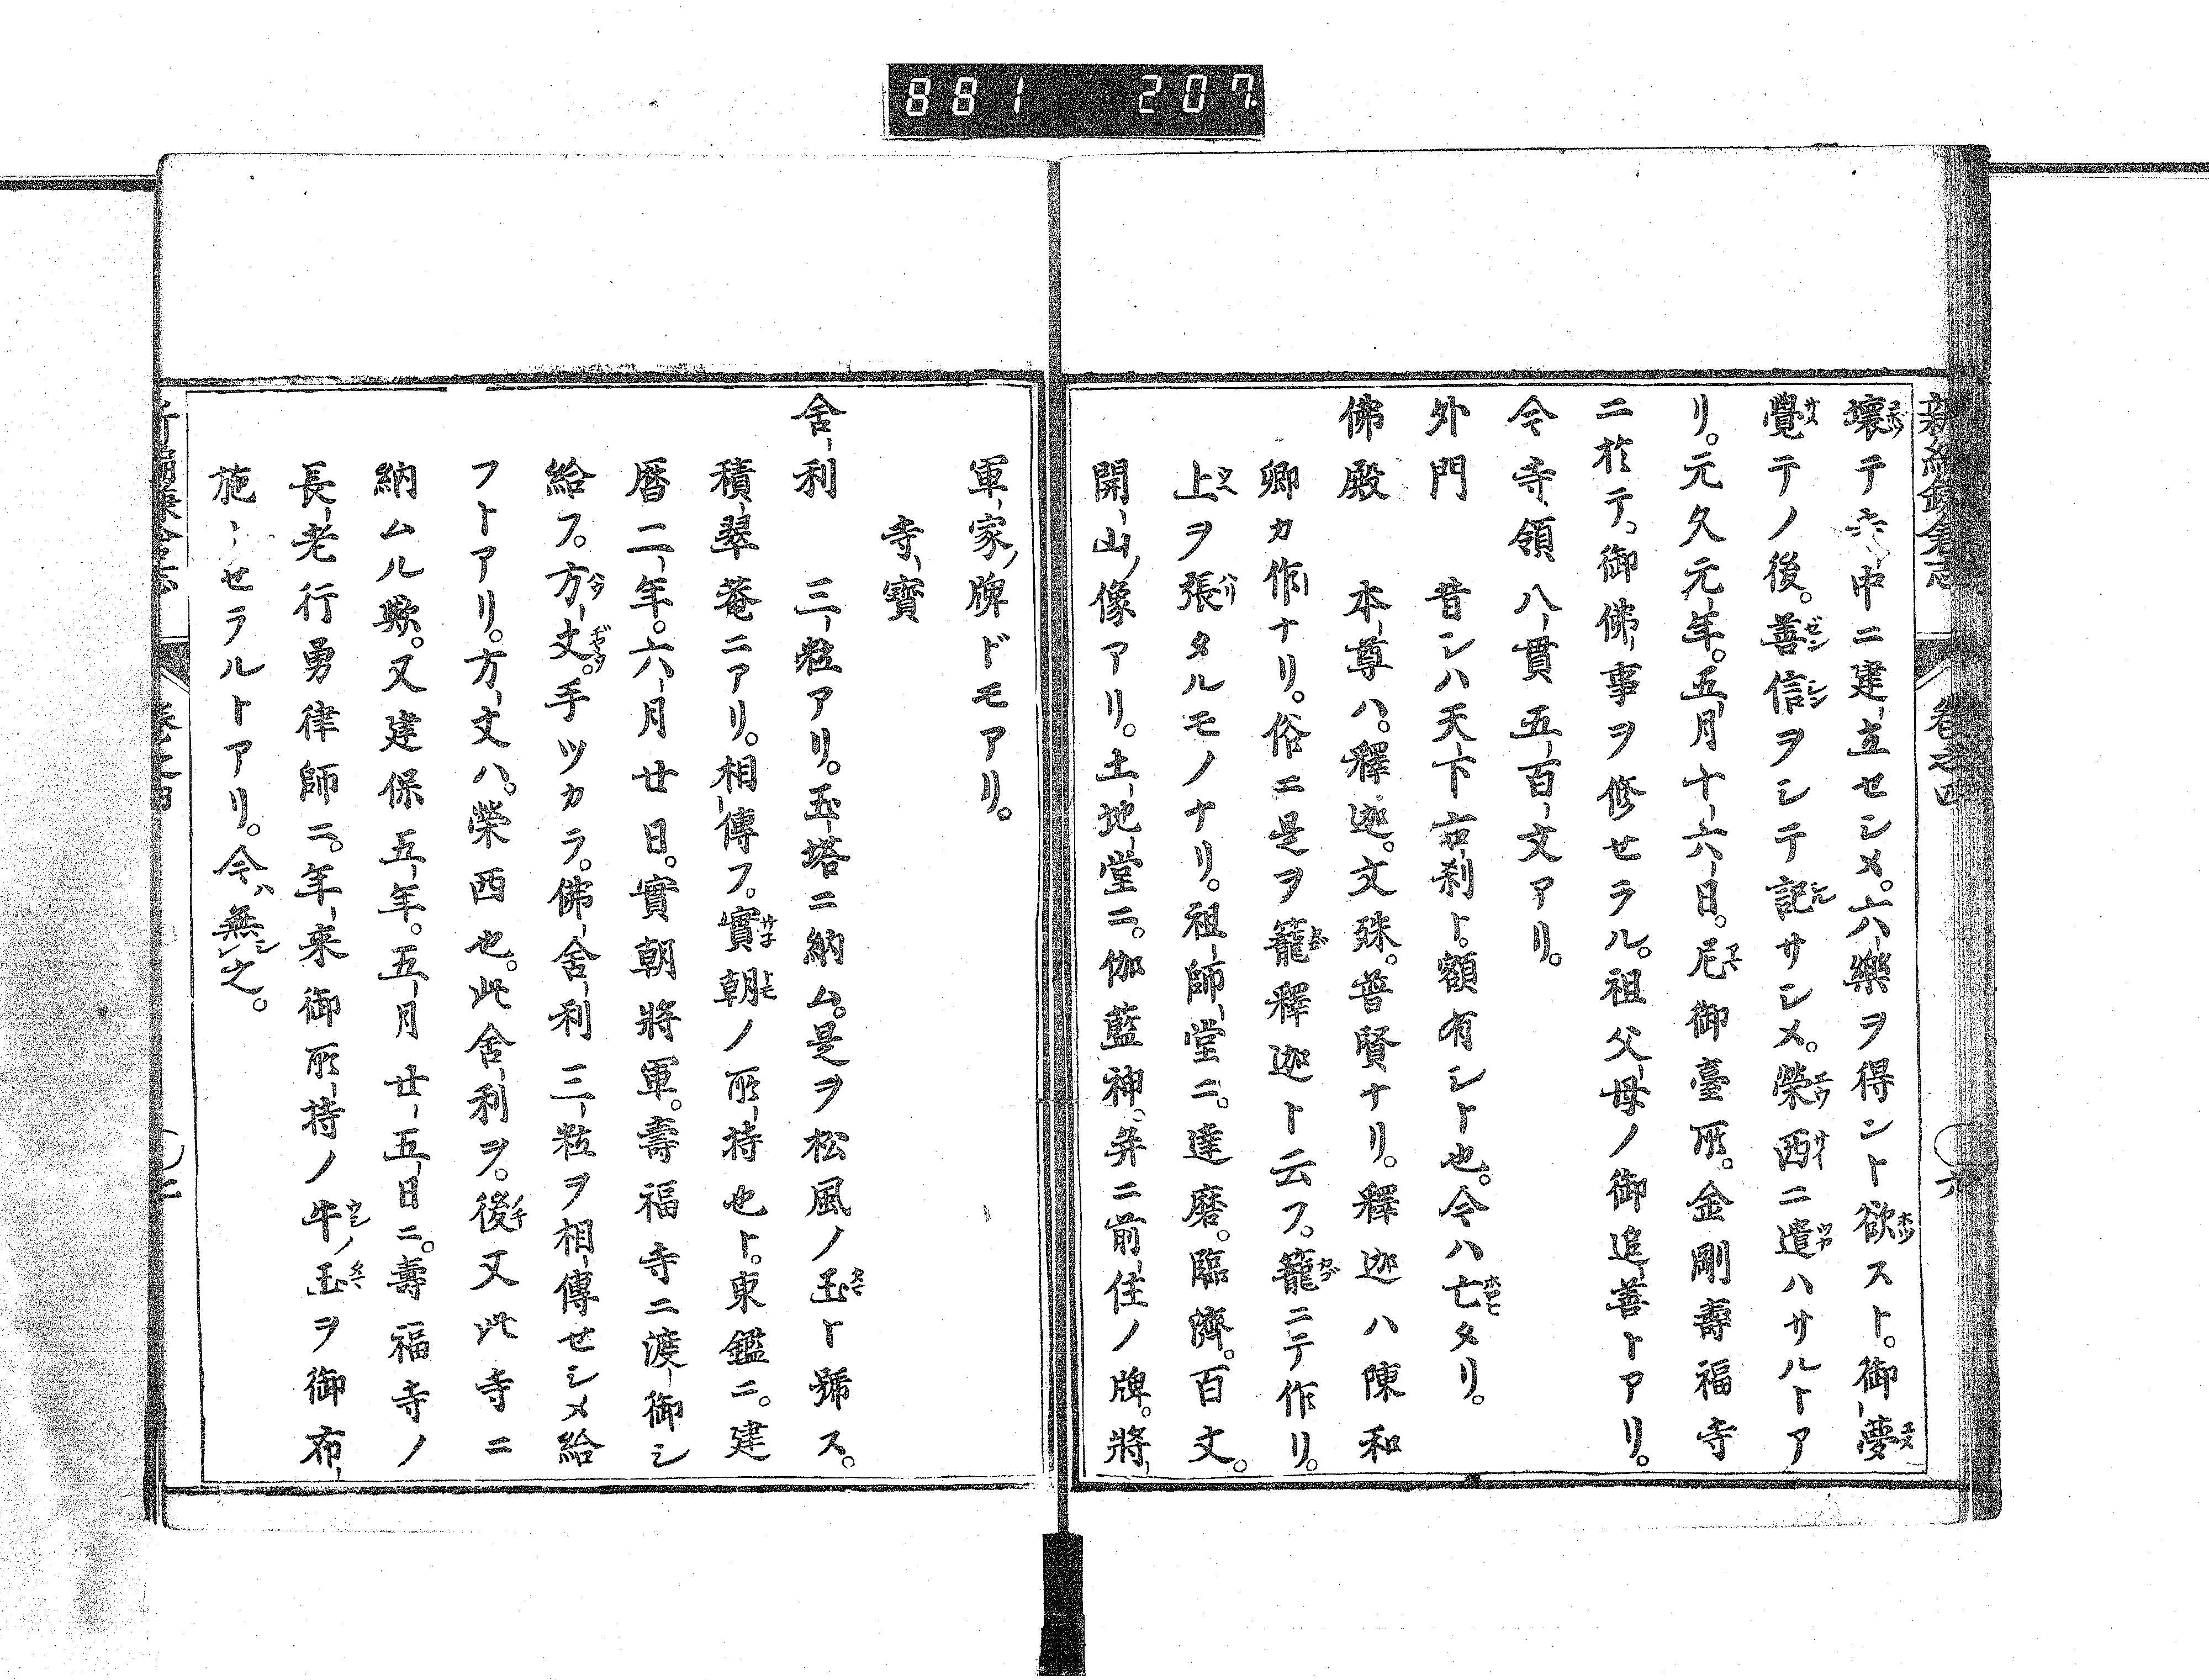 881 207
新編鎌倉志 卷之四 〇六
壞テ寺中ニ建立セシメ。六樂ヲ得ント欲スト。御夢
覺テノ後。善信ヲシテ記サシメ。榮西ニ遣ハサルトア
リ。元久元年。五月十六日。尼御臺所。金剛壽福寺
ニ於テ。御佛事ヲ修セラル。祖父母ノ御追善トアリ。
今寺領八貫五百文アリ。
外門 昔シハ天下古刹ト。額有シト也。今ハ亡タリ。
佛殿 本尊ハ。釋迦。文殊。普賢ナリ。釋迦ハ陳和
卿カ作ナリ。俗ニ是ヲ籠釋迦ト云フ。籠ニテ作リ。
上ヲ張タルモノナリ。祖師堂ニ。達磨。臨濟。百丈。
開山ノ像アリ。土地堂ニ。伽藍神。并ニ前住ノ牌。將
軍家ノ牌ドモアリ。
寺寶
舍利 三粒アリ。玉塔ニ納ム。是ヲ松風ノ玉ト號ス。
積翠菴ニアリ。相傳フ。實朝ノ所持也ト。東鑑ニ。建
曆二年。六月廿日。實朝將軍。壽福寺ニ渡御シ
給フ。方丈。手ツカラ。佛舍利三粒ヲ相傳セシメ給
フトアリ。方丈ハ。榮西也。此舍利ヲ。後又此寺ニ
納ムル歟。又建保五年。五月廿五日ニ。壽福寺ノ
長老行勇律師ニ。年来御所持ノ牛ノ玉ヲ御布
施セラルトアリ。今ハ無之。